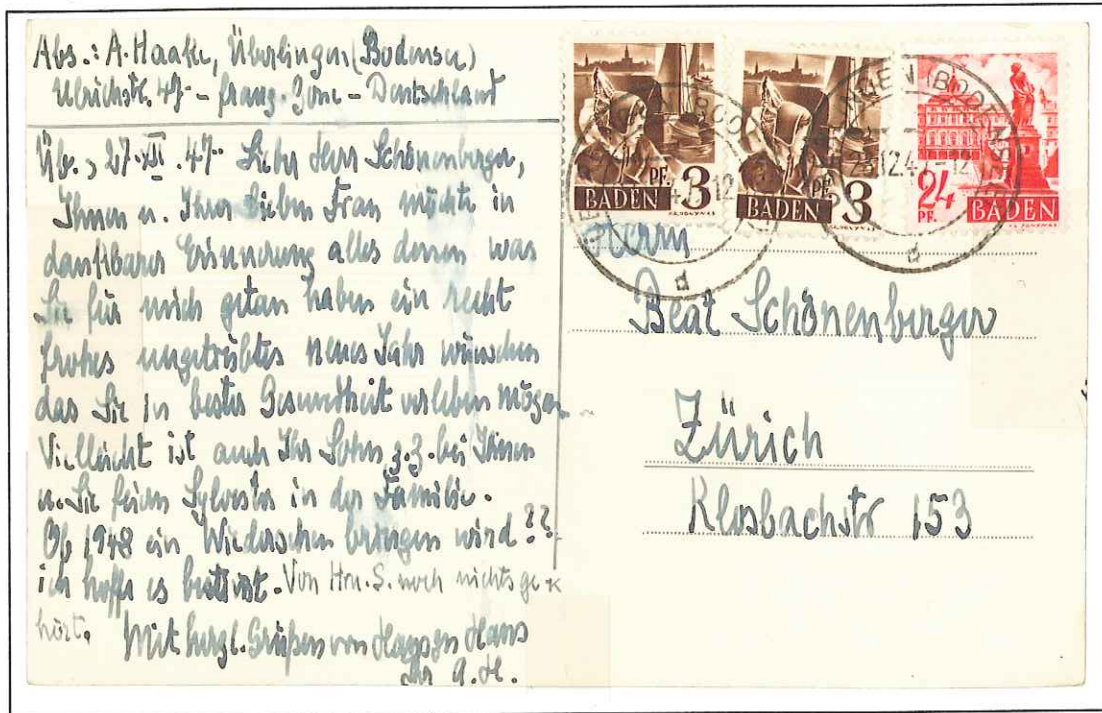 Abs.: A. Haake, Überlingen (Bodensee)
Ulrichstr. 47 - franz. Zone - Deutschland
Üb., 27.XII.47. Lieber Herr Schönenberger,
Ihnen u. Ihrer lieben Frau möchte in
dankbarer Erinnerung alles dessen was
Sie für mich getan haben ein recht
frohes ungetrübtes neues Jahr wünschen
das Sie in bester Gesundheit verleben mögen
Vielleicht ist auch Ihr Sohn z.Z. bei Ihnen
u. Sie feiern Sylvester in der Familie.
Ob 1948 ein Wiedersehen bringen wird??
ich hoffe es. Von Hrn. S. noch nichts ge-
hört.
Mit herzl. Grüßen von Haus zu Haus
Ihr A.H.
PF. 3
BADEN
PF. 3
BADEN
24
PF. BADEN
(BODENSEE)
Herrn
Beat Schönenberger
Zürich
Klosbachstr 153